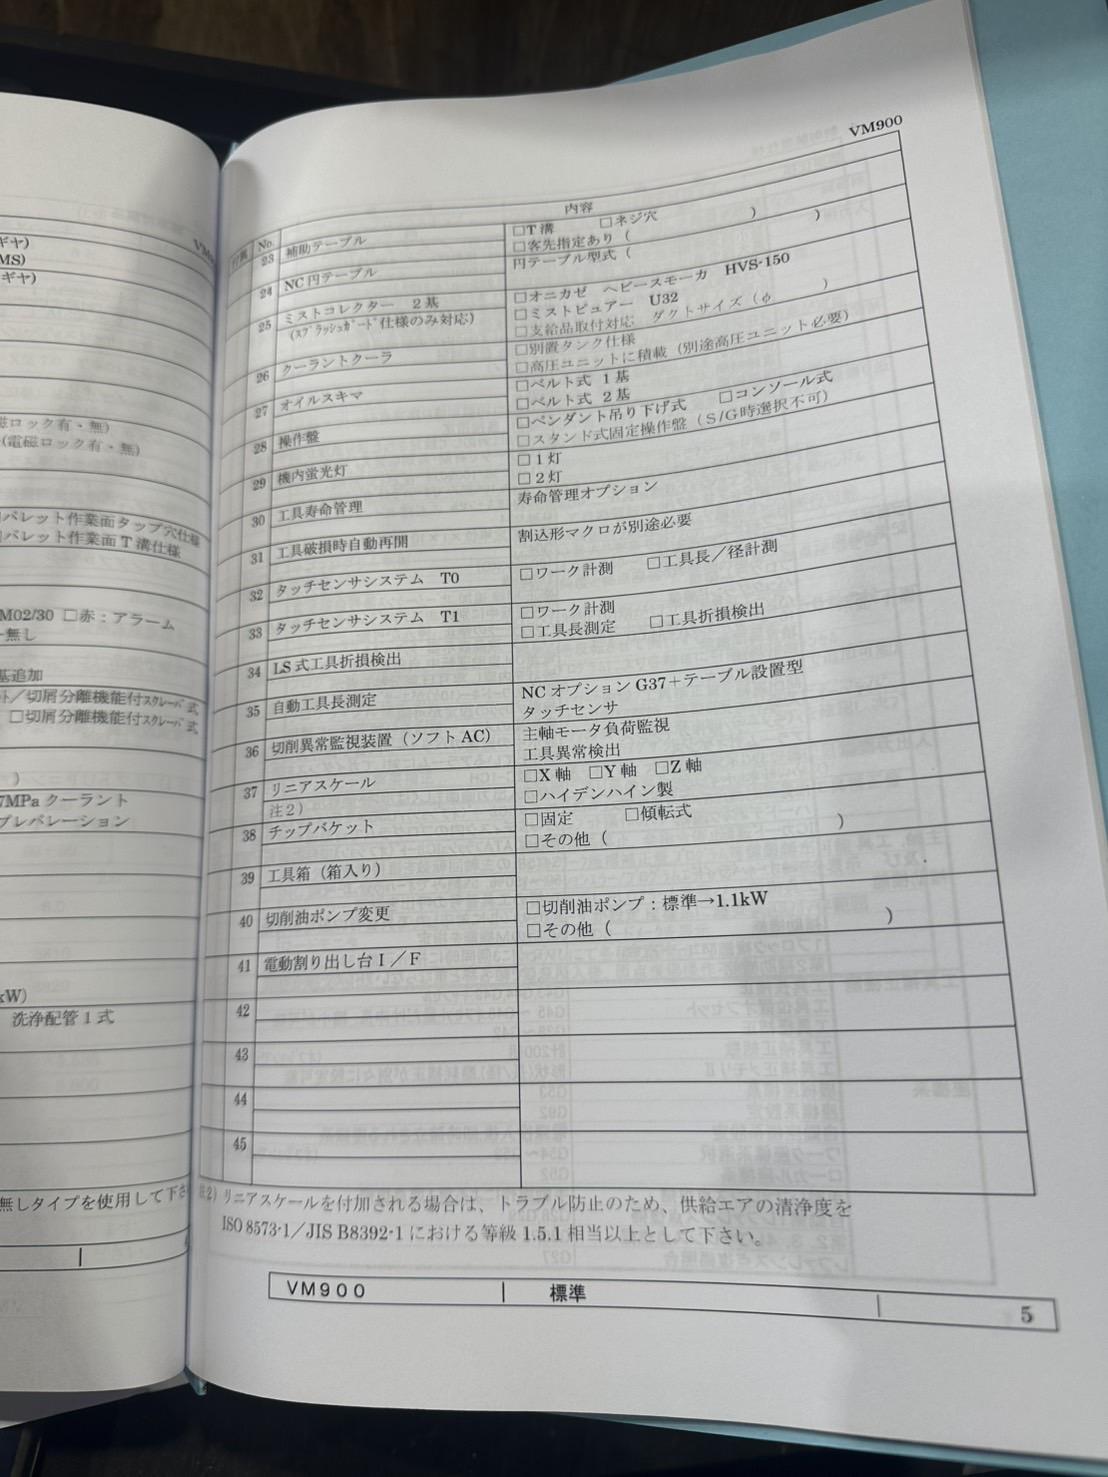 ギヤ)
MS)
ギヤ)
ロック有・無)
(電磁ロック有・無)
パレット作業面タップ穴仕様
パレット作業面T溝仕様
M02/30 □赤：アラーム
無し
基追加
／切屑分離機能付スクレーパ式
□切屑分離機能付スクレーパ式
)
7MPaクーラント
プレパレーション
kW)
洗浄配管1式
無しタイプを使用して下さ
VM900
付属 No. 内容
23 補助テーブル □T溝 □ネジ穴
□客先指定あり ( )
24 NC円テーブル 円テーブル型式 ( )
25 ミストコレクター 2基 □オニカゼ ヘビースモーカ HVS-150
(スプラッシュガード仕様のみ対応) □ミストピュアー U32
□支給品取付対応 ダクトサイズ (φ )
26 クーラントクーラ □別置タンク仕様
□高圧ユニットに積載 (別途高圧ユニット必要)
27 オイルスキマ □ベルト式 1基
□ベルト式 2基
28 操作盤 □ペンダント吊り下げ式 □コンソール式
□スタンド式固定操作盤 (S/G時選択不可)
29 機内蛍光灯 □1灯
□2灯
30 工具寿命管理 寿命管理オプション
31 工具破損時自動再開 割込形マクロが別途必要
32 タッチセンサシステム T0 □ワーク計測 □工具長／径計測
33 タッチセンサシステム T1 □ワーク計測
□工具長測定 □工具折損検出
34 LS式工具折損検出
35 自動工具長測定 NCオプションG37＋テーブル設置型
タッチセンサ
36 切削異常監視装置 (ソフトAC) 主軸モータ負荷監視
工具異常検出
37 リニアスケール □X軸 □Y軸 □Z軸
注2) □ハイデンハイン製
38 チップバケット □固定 □傾転式
□その他 ( )
39 工具箱 (箱入り)
40 切削油ポンプ変更 □切削油ポンプ：標準→1.1kW
□その他 ( )
41 電動割り出し台I／F
42
43
44
45
注2) リニアスケールを付加される場合は、トラブル防止のため、供給エアの清浄度を
ISO 8573-1／JIS B8392-1における等級1.5.1相当以上として下さい。
VM900 標準 5